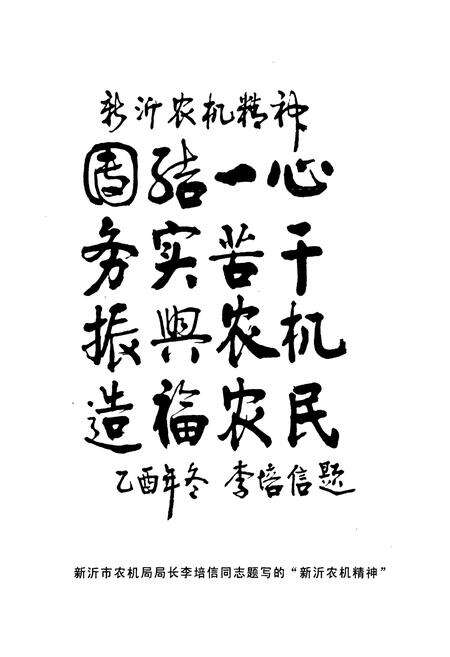 新沂农机精神
团结一心
务实苦干
振興农机
造福农民
乙酉年冬 李培信题
新沂市农机局局长李培信同志题写的“新沂农机精神”